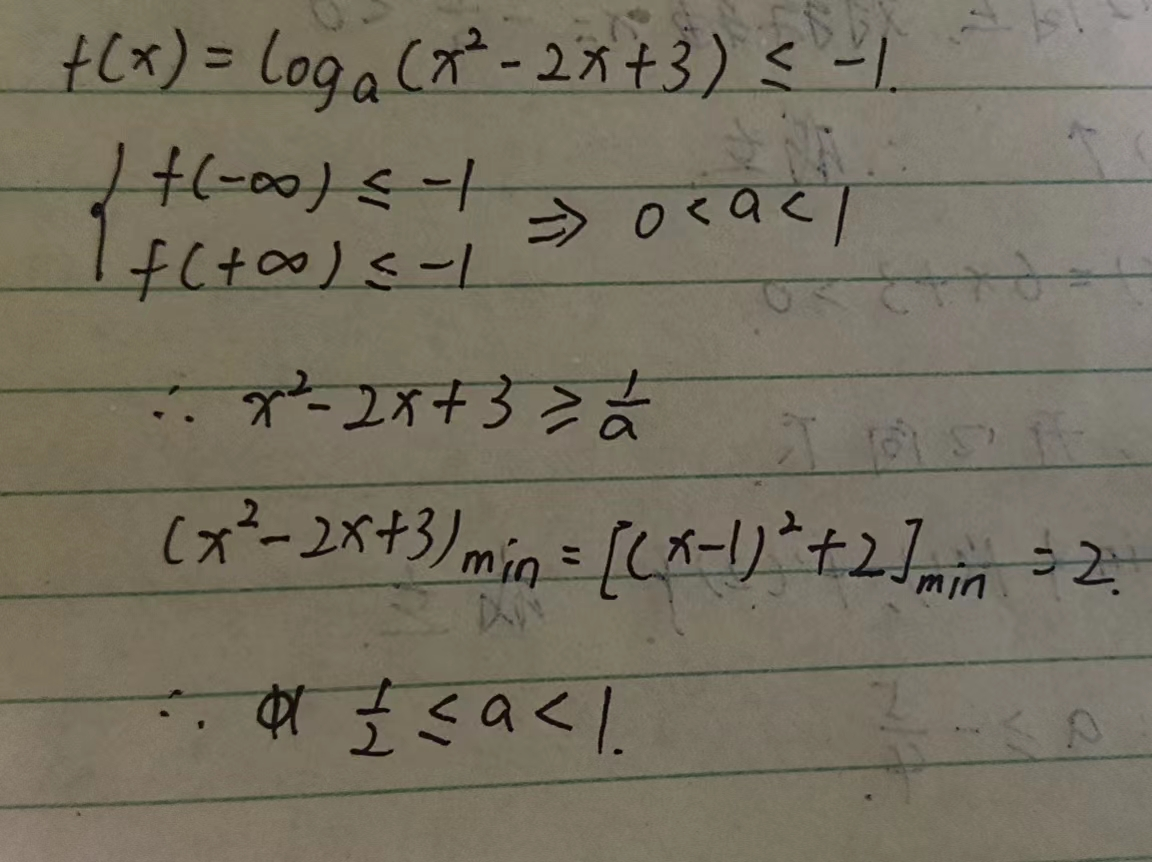 f(x) = log_a (x² - 2x + 3) ≤ -1.
{ f(-∞) ≤ -1
f(+∞) ≤ -1 ⇒ 0 < a < 1
∴ x² - 2x + 3 ≥ 1/a
(x² - 2x + 3)_min = [(x-1)² + 2]_min = 2.
∴ 1/2 ≤ a < 1.